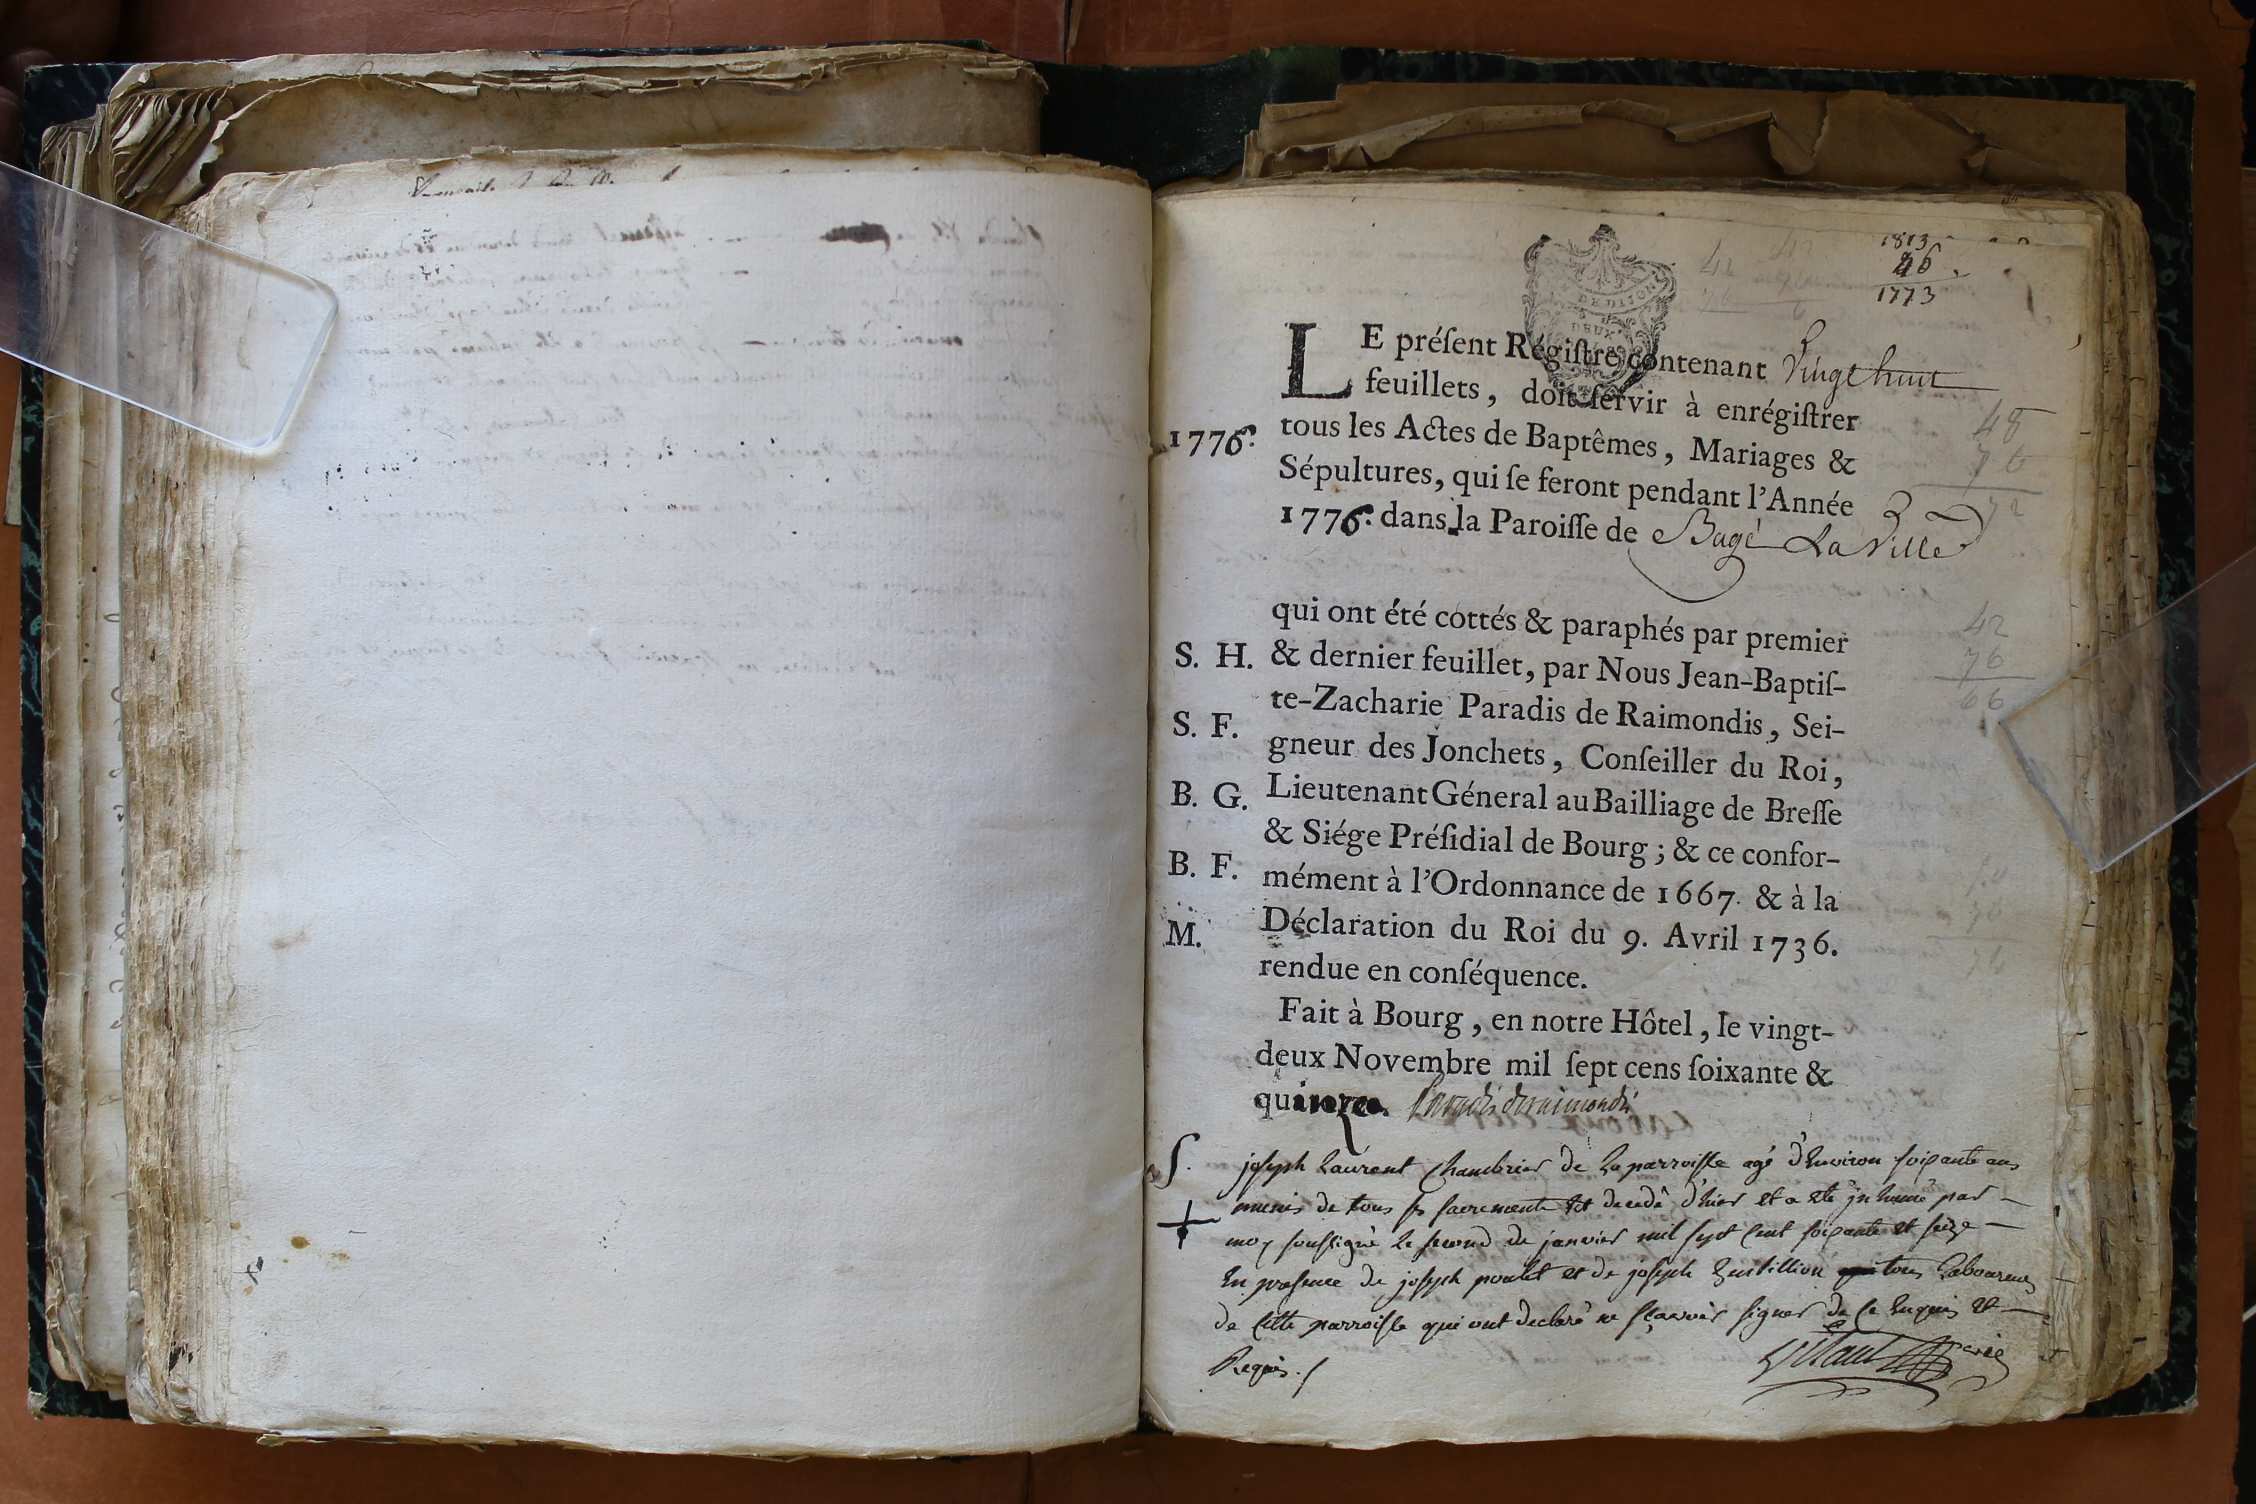 1813
46
1773
LE préſent Régiſtre contenant Vingt huit
feuillets, doit ſervir à enrégiſtrer
1776. tous les Actes de Baptêmes, Mariages &
Sépultures, qui ſe feront pendant l'Année
1776. dans la Paroiſſe de Bagé La Ville
qui ont été cottés & paraphés par premier
S. H. & dernier feuillet, par Nous Jean-Baptiſ-
te-Zacharie Paradis de Raimondis, Sei-
S. F. gneur des Jonchets, Conſeiller du Roi,
B. G. Lieutenant Géneral au Bailliage de Breſſe
& Siége Préſidial de Bourg; & ce confor-
B. F. mément à l'Ordonnance de 1667. & à la
M. Déclaration du Roi du 9. Avril 1736.
rendue en conſéquence.
Fait à Bourg, en notre Hôtel, le vingt-
deux Novembre mil ſept cens ſoixante &
quinze. Paradis deraimondis
S. joseph Laurent Chambrier de La parroisse agé d'Environ soixante ans
munis de tous ses sacrements Est decedé d'hier et a eté jnhumé par
moy soussigné le second de janvier mil sept Cent soixante et seize
En presence de joseph poulet et de joseph tous Laboureurs
de Cette parroisse qui ont declaré ne sçavoir signer de Ce Enquis et
Requis./
48
76
72
42
76
66
DE DIJON
DEUX